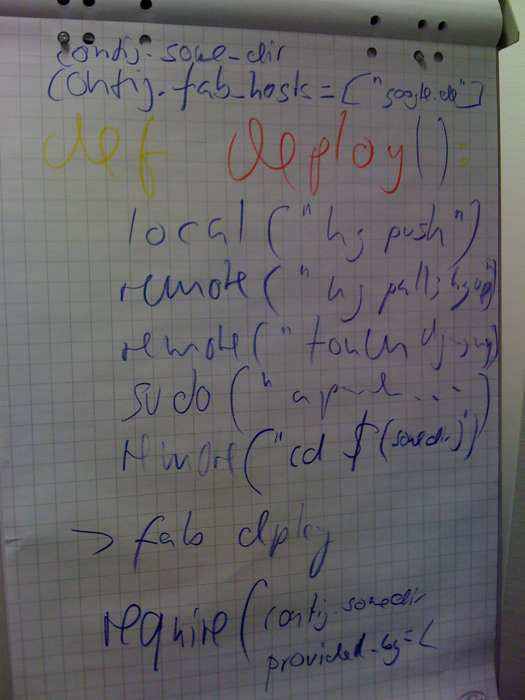 config.some_dir
config.fab_hosts = ["google.de"]
def deploy():
local("hg push")
remote("hg pull; hg up")
remote("touch
sudo("
remote("cd $(somedir)")
> fab deploy
require(config.somedir
provided_by=(